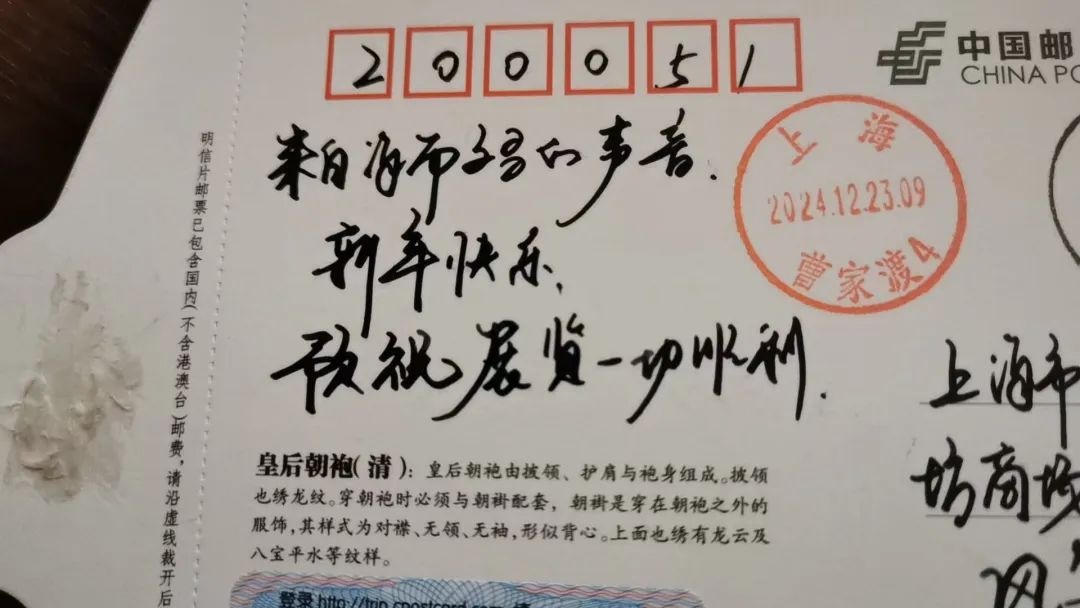 200051
中国邮
CHINA PO
上海
2024.12.23.09
曹家渡4
来自海师的声音.
新年快乐、
预祝展览一切顺利.
上海市
坊商场
皇后朝袍(清)：皇后朝袍由披领、护肩与袍身组成。披领
也绣龙纹。穿朝袍时必须与朝褂配套，朝褂是穿在朝袍之外的
服饰,其样式为对襟、无领、无袖,形似背心。上面也绣有龙云及
八宝平水等纹样。
明信片邮票已包含国内(不含港澳台)邮费,请沿虚线裁开后
登录 http://trip.cpostcard.com